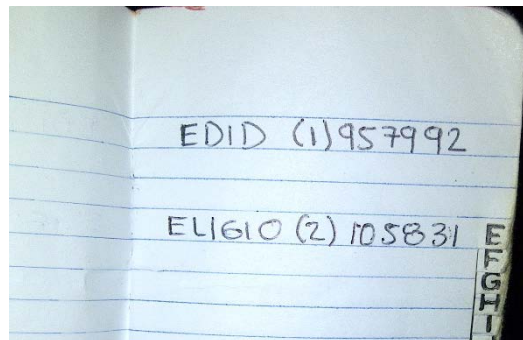 EDID (1) 957992
ELIGIO (2) 105831
E
F
G
H
I